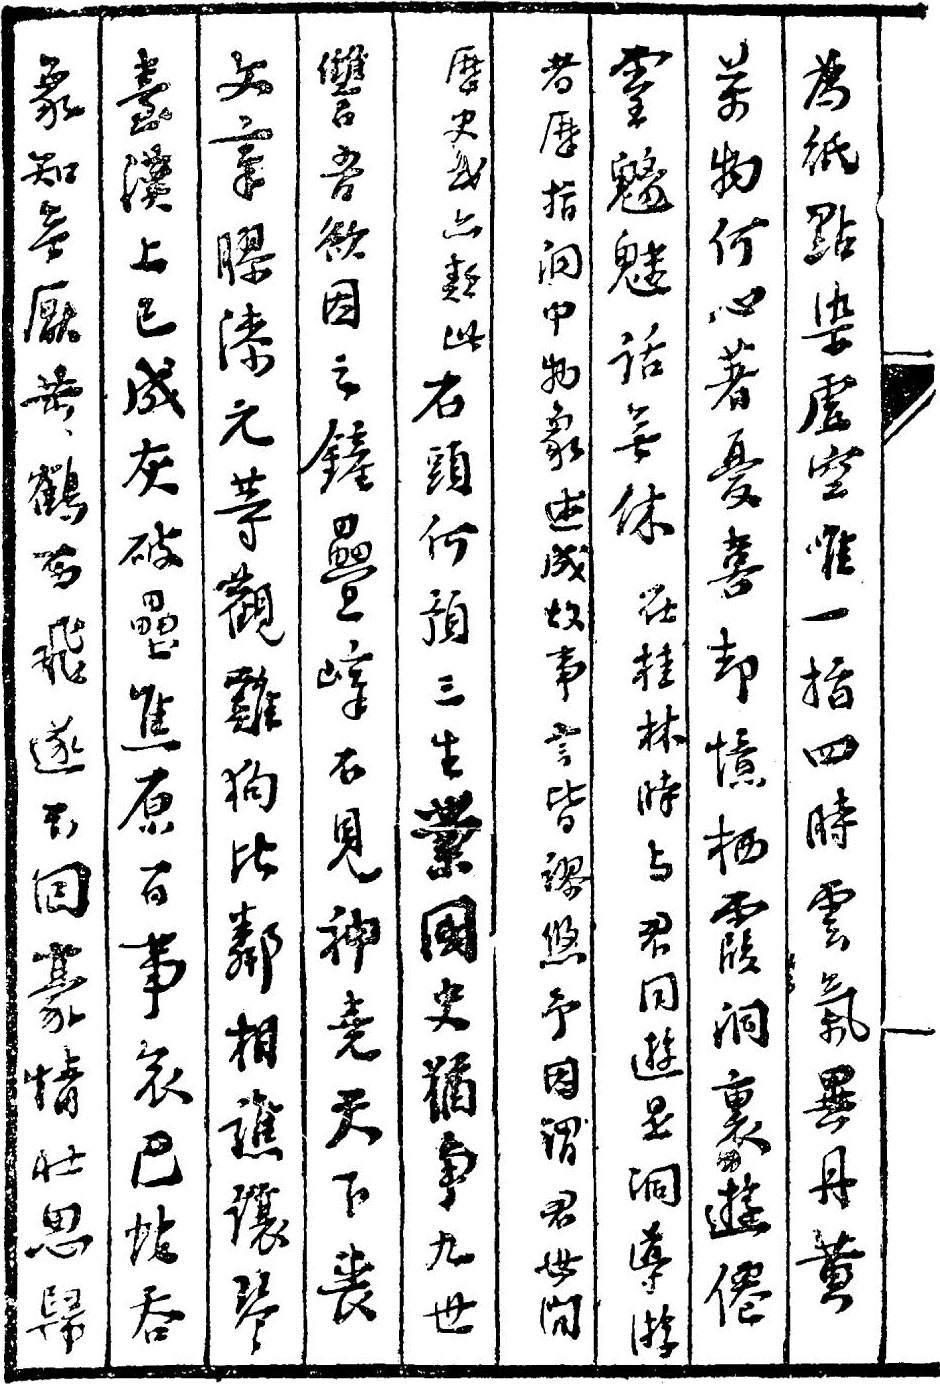 為紙點染虛空唯一指四時雲氣異丹黃
萬物何心著憂喜却憶栖霞洞裏遊倦
靈魑魅話無休在桂林時与君同遊是洞導游
者歷指洞中物象述成故事言皆謬悠予因謂君世間
歷史或亦類此石頭何預三生業國史猶爭九世
讐吾欲因之鏟疊嶂不見神堯天下喪
文章膠漆元等觀雞狗比鄰相譙讓琴
臺漢上已成灰破壘焦原百事哀巴蛇吞
象知無厭黃鶴高飛遂不回豪情壯思歸